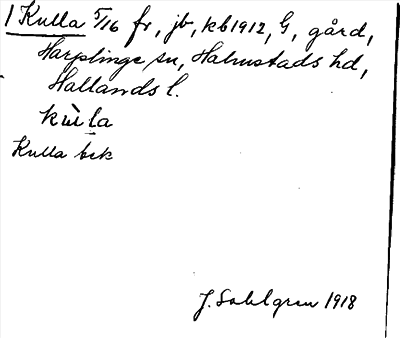 1 Kulla 5/16 fr, jb, kb 1912, G, gård,
Harplinge sn, Halmstads hd,
Hallands l.
kùla
Kulla bsk
J. Sahlgren 1918